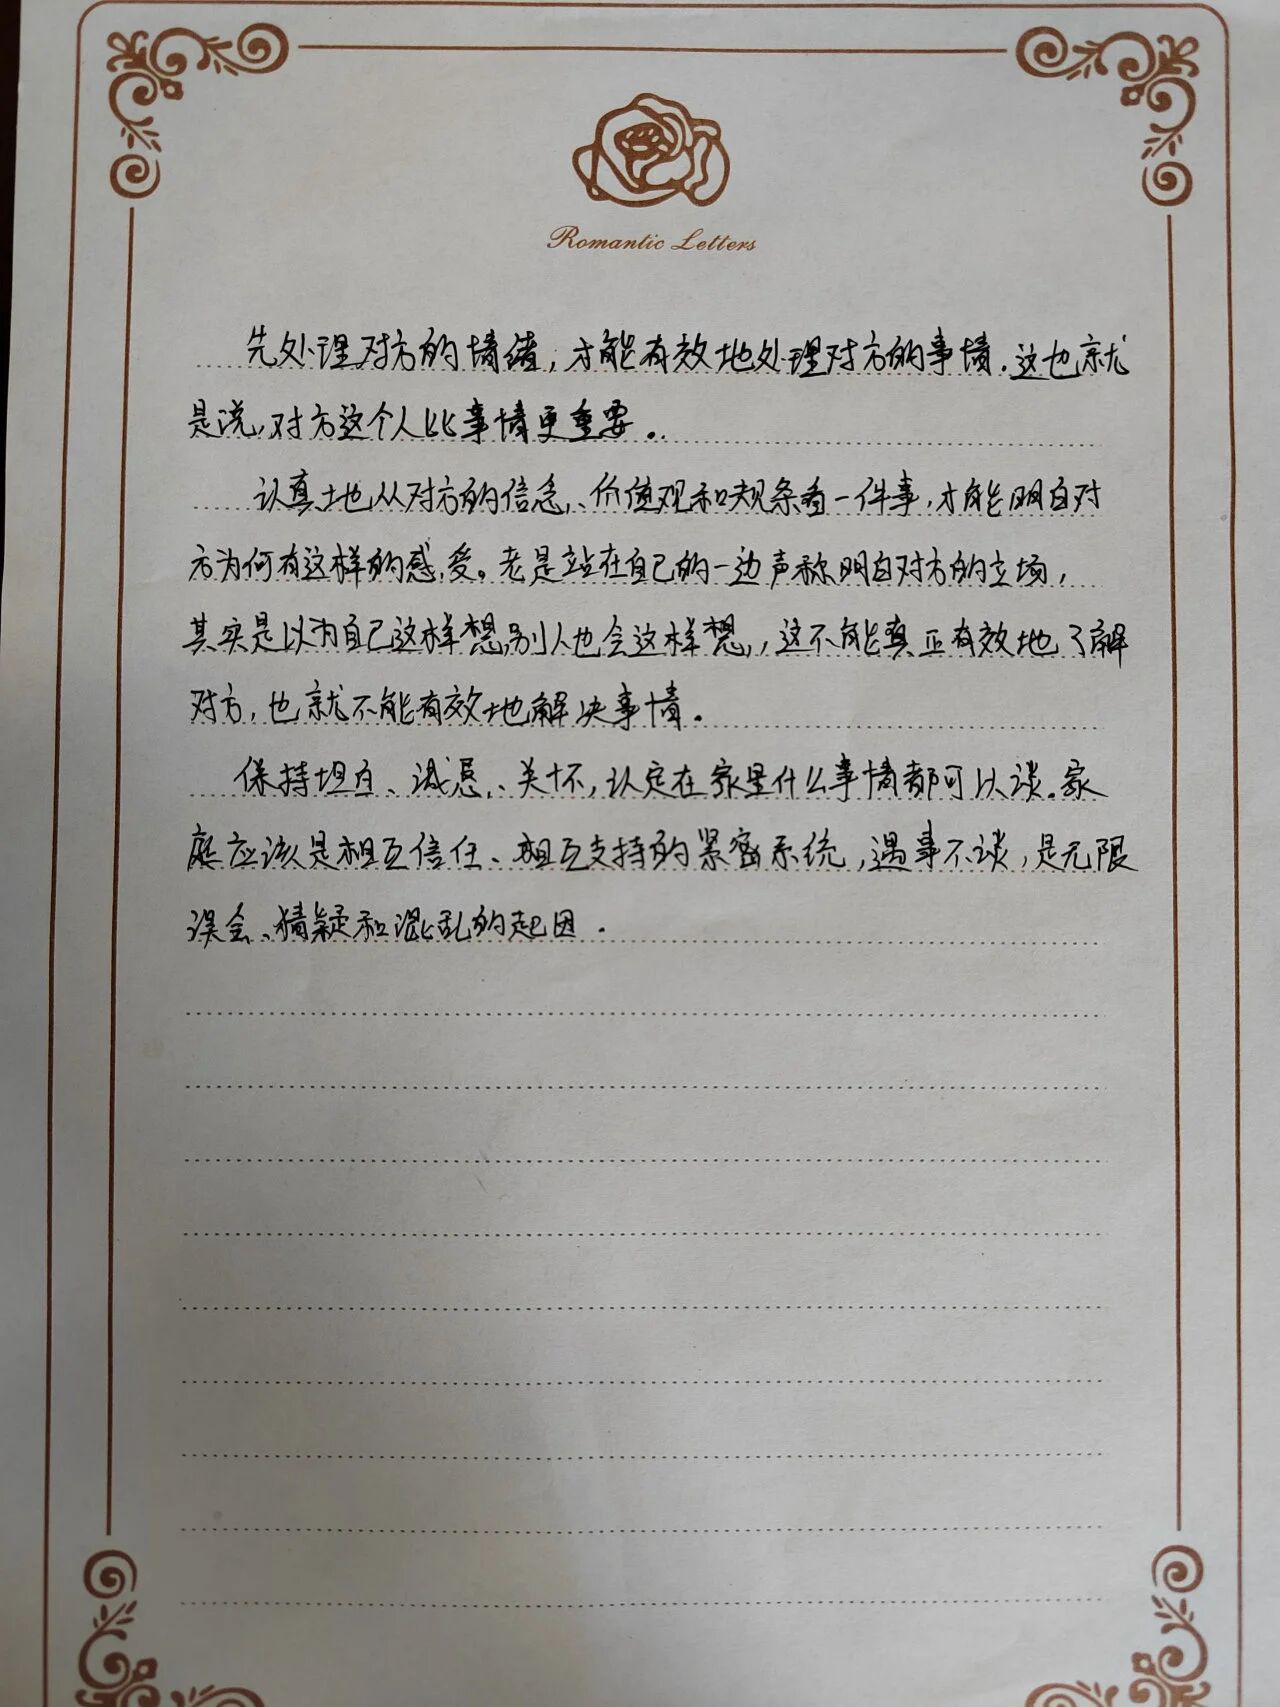 Romantic Letters
先处理对方的情绪，才能有效地处理对方的事情。这也就
是说，对方这个人比事情更重要。
认真地从对方的信念、价值观和规条看一件事，才能明白对
方为何有这样的感受。老是站在自己的一边声称明白对方的立场，
其实是以为自己这样想，别人也会这样想，这不能真正有效地了解
对方，也就不能有效地解决事情。
保持坦白、诚恳、关怀，认定在家里什么事情都可以谈。家
庭应该是相互信任、相互支持的紧密系统，遇事不谈，是无限
误会、猜疑和混乱的起因。